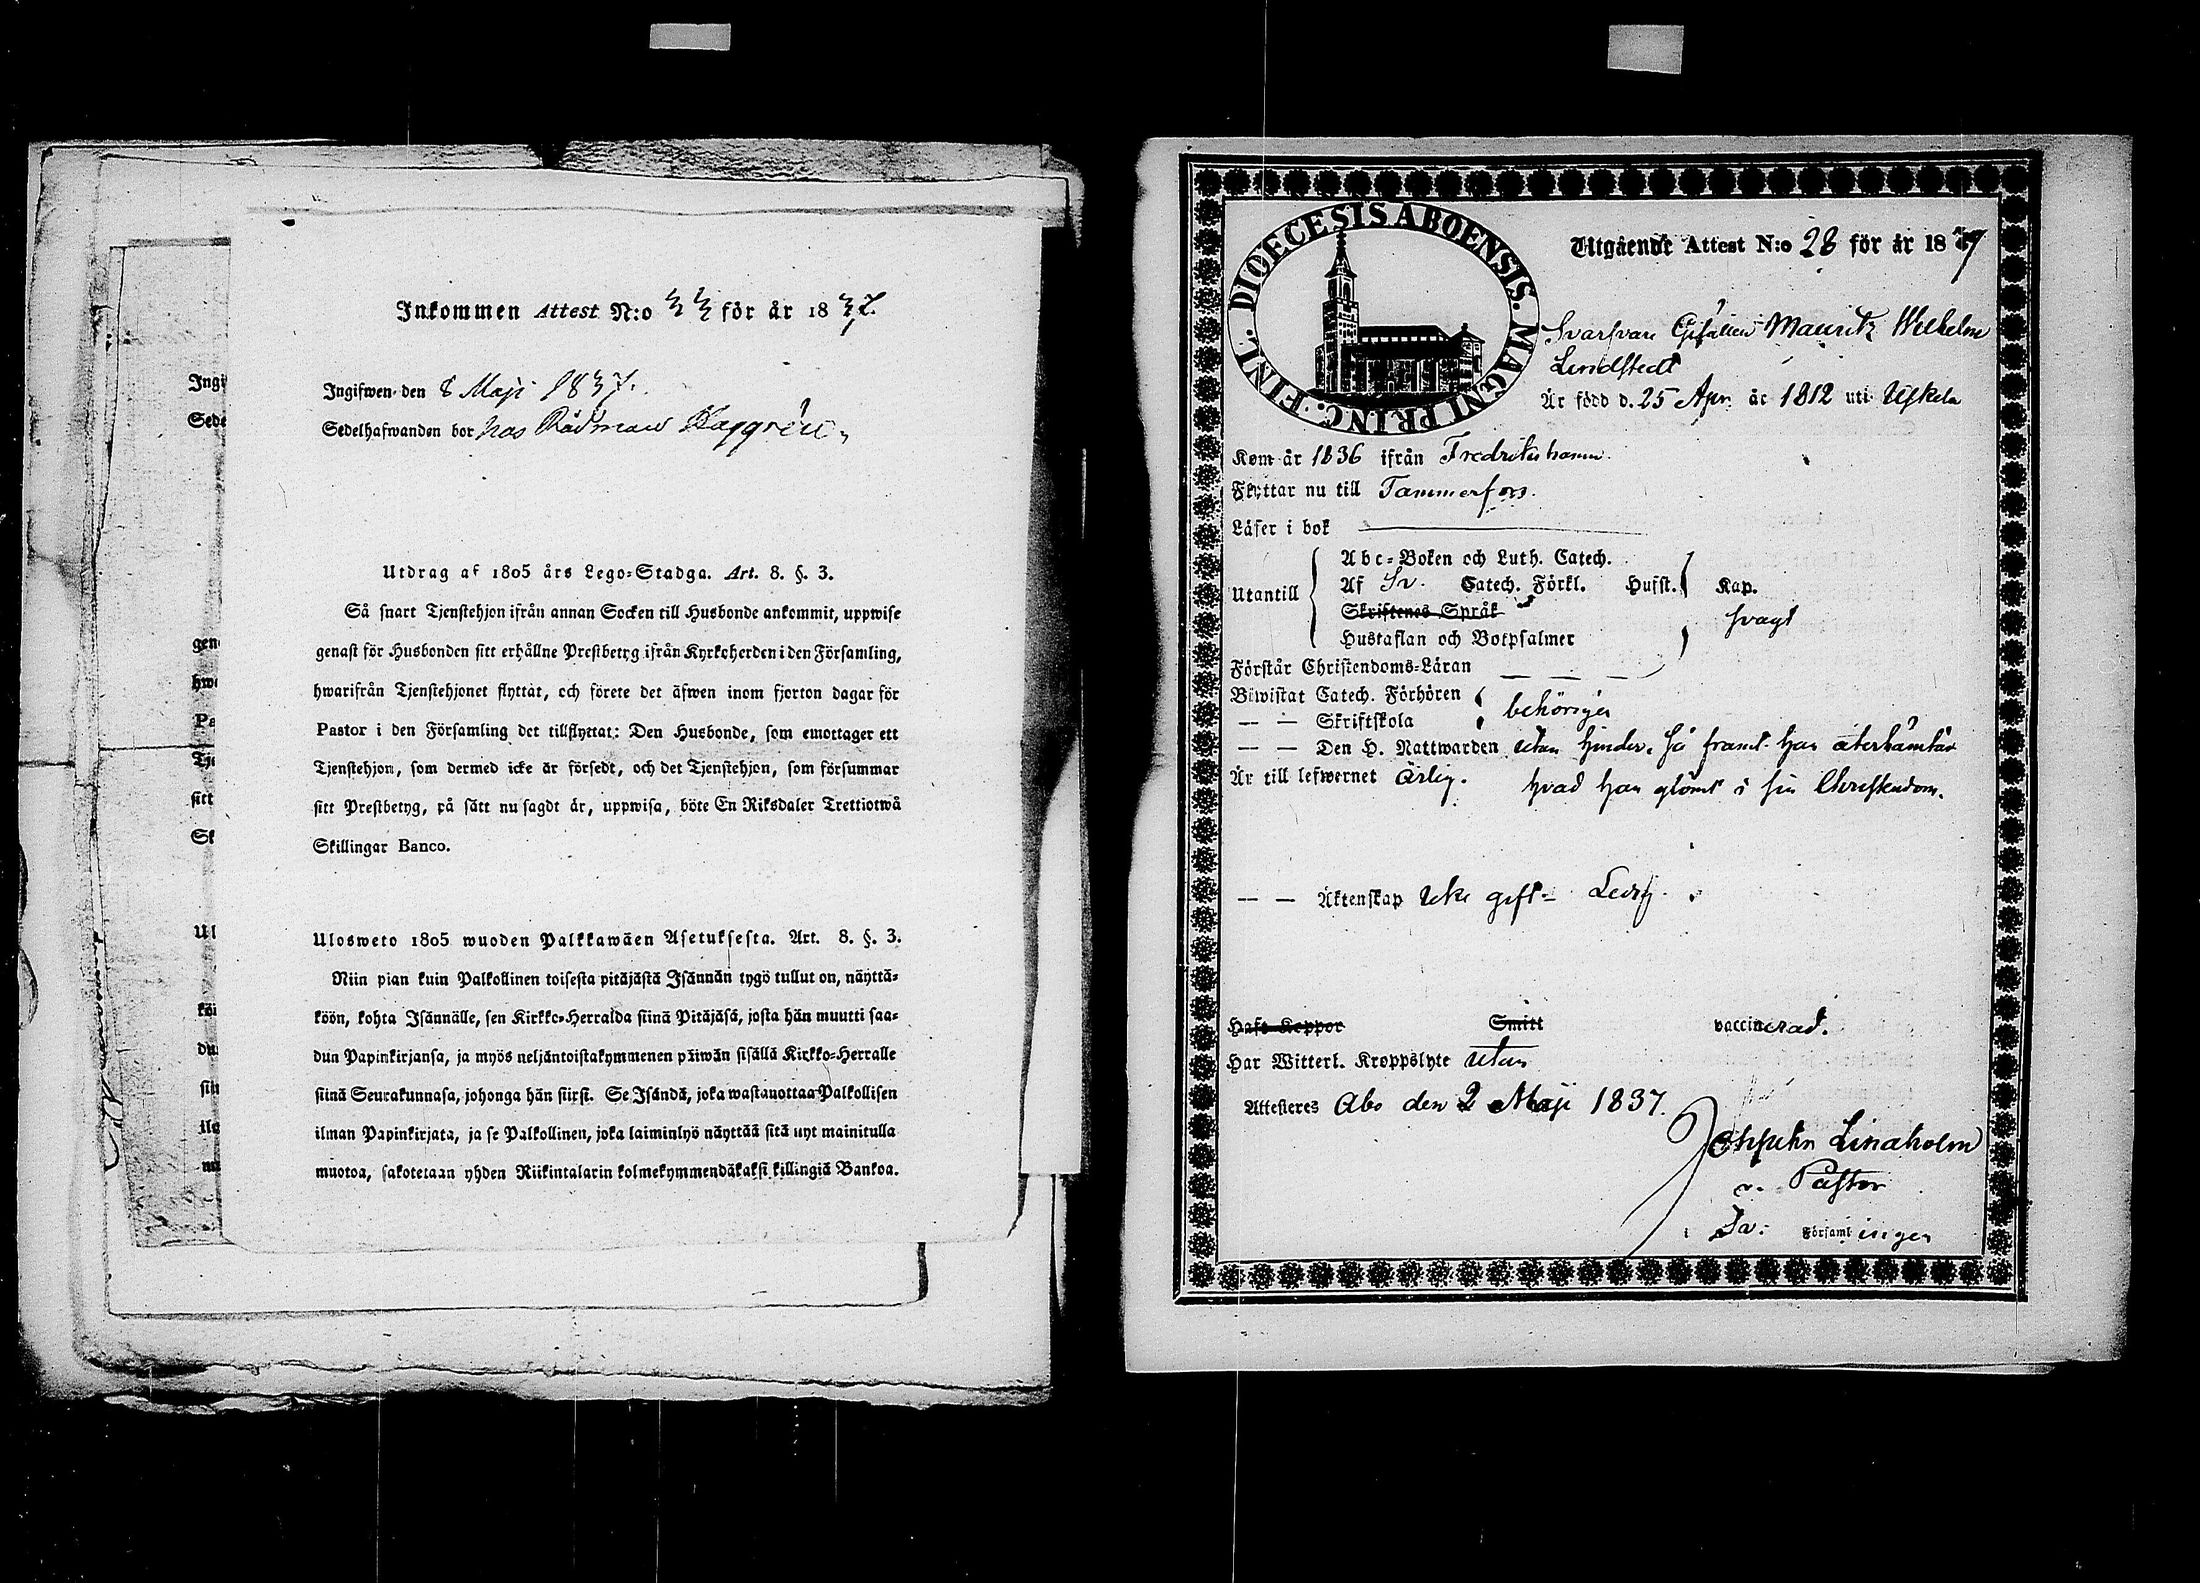 Inkommen Attest N:o 33 för år 1837.
Ingifwen den 8 Maji 1837.
Sedelhafwanden bor hos Rådman Hapgrén
Utdrag af 1805 års Lego-Stadga. Art. 8. §. 3.
Så snart Tjenstehjon ifrån annan Socken till Husbonde ankommit, uppwise
genast för Husbonden sitt erhållne Prestbetyg ifrån Kyrkoherden i den Församling,
hwarifrån Tjenstehjonet flyttat, och förete det äfwen inom fjorton dagar för
Pastor i den Församling det tillflyttat: Den Husbonde, som emottager ett
Tjenstehjon, som dermed icke är försedt, och det Tjenstehjon, som försummar
sitt Prestbetyg, på sätt nu sagdt är, uppwisa, böte En Riksdaler Trettiotwå
Skillingar Banco.
Ulosweto 1805 wuoden Palkkawäen Asetuksesta. Art. 8. §. 3.
Niin pian kuin Palkollinen toisesta pitäjästä Isännän tygö tullut on, näyttä-
köön, kohta Isännälle, sen Kirkko-Herralda siinä Pitäjäsä, josta hän muutti saa-
dun Papinkirjansa, ja myös neljäntoistakymmenen päiwän sisällä Kirkko-Herralle
siinä Seurakunnasa, johonga hän siirsi. Se Isändä, joka wastanottaa Palkollisen
ilman Papinkirjata, ja se Palkollinen, joka laiminlyö näyttää sitä nyt mainitulla
muotoa, sakotetaan yhden Riikintalarin kolmekymmendäkaksi killingiä Bankoa.
Ingi
Sede
gen
hwa
Pa
Tje
sitt
Sk
Ul
köi
du
sii
ilm
mu
DIOECESIS ABOENSIS. MAGNI PRINC. FINL.
Utgående Attest N:o 28 för år 1837
Svarfvare Gesällen Mauritz Wilhelm
Lindstedt
Är född d. 25 Apr. år 1812 uti Uskela
Kom år 1836 ifrån Fredrikshamn.
Flyttar nu till Tammerfors.
Läser i bok
Utantill
Abc-Boken och Luth. Catech.
Af Sv. Catech. Förkl. Hufst. Kap.
Skriftenes Språk
svagt
Hustaflan och Botpsalmer
Förstår Christendoms-Läran
Biwistat Catech. Förhören
behörigen
— — Skriftskola
— — Den H. Nattwarden utan hinder, så framt han återhämtar
Är till lefwernet Ärlig. hvad han glömt i sin Christendom.
— — Äktenskap icke gift - Ledig.
Haft Koppor Smitt vaccinerad.
Har Witterl. Kroppslyte utan
Attesteres Åbo den 2 Maji 1837.
Josephn Lindholm
v. Pastor
i Sv. Församlingen